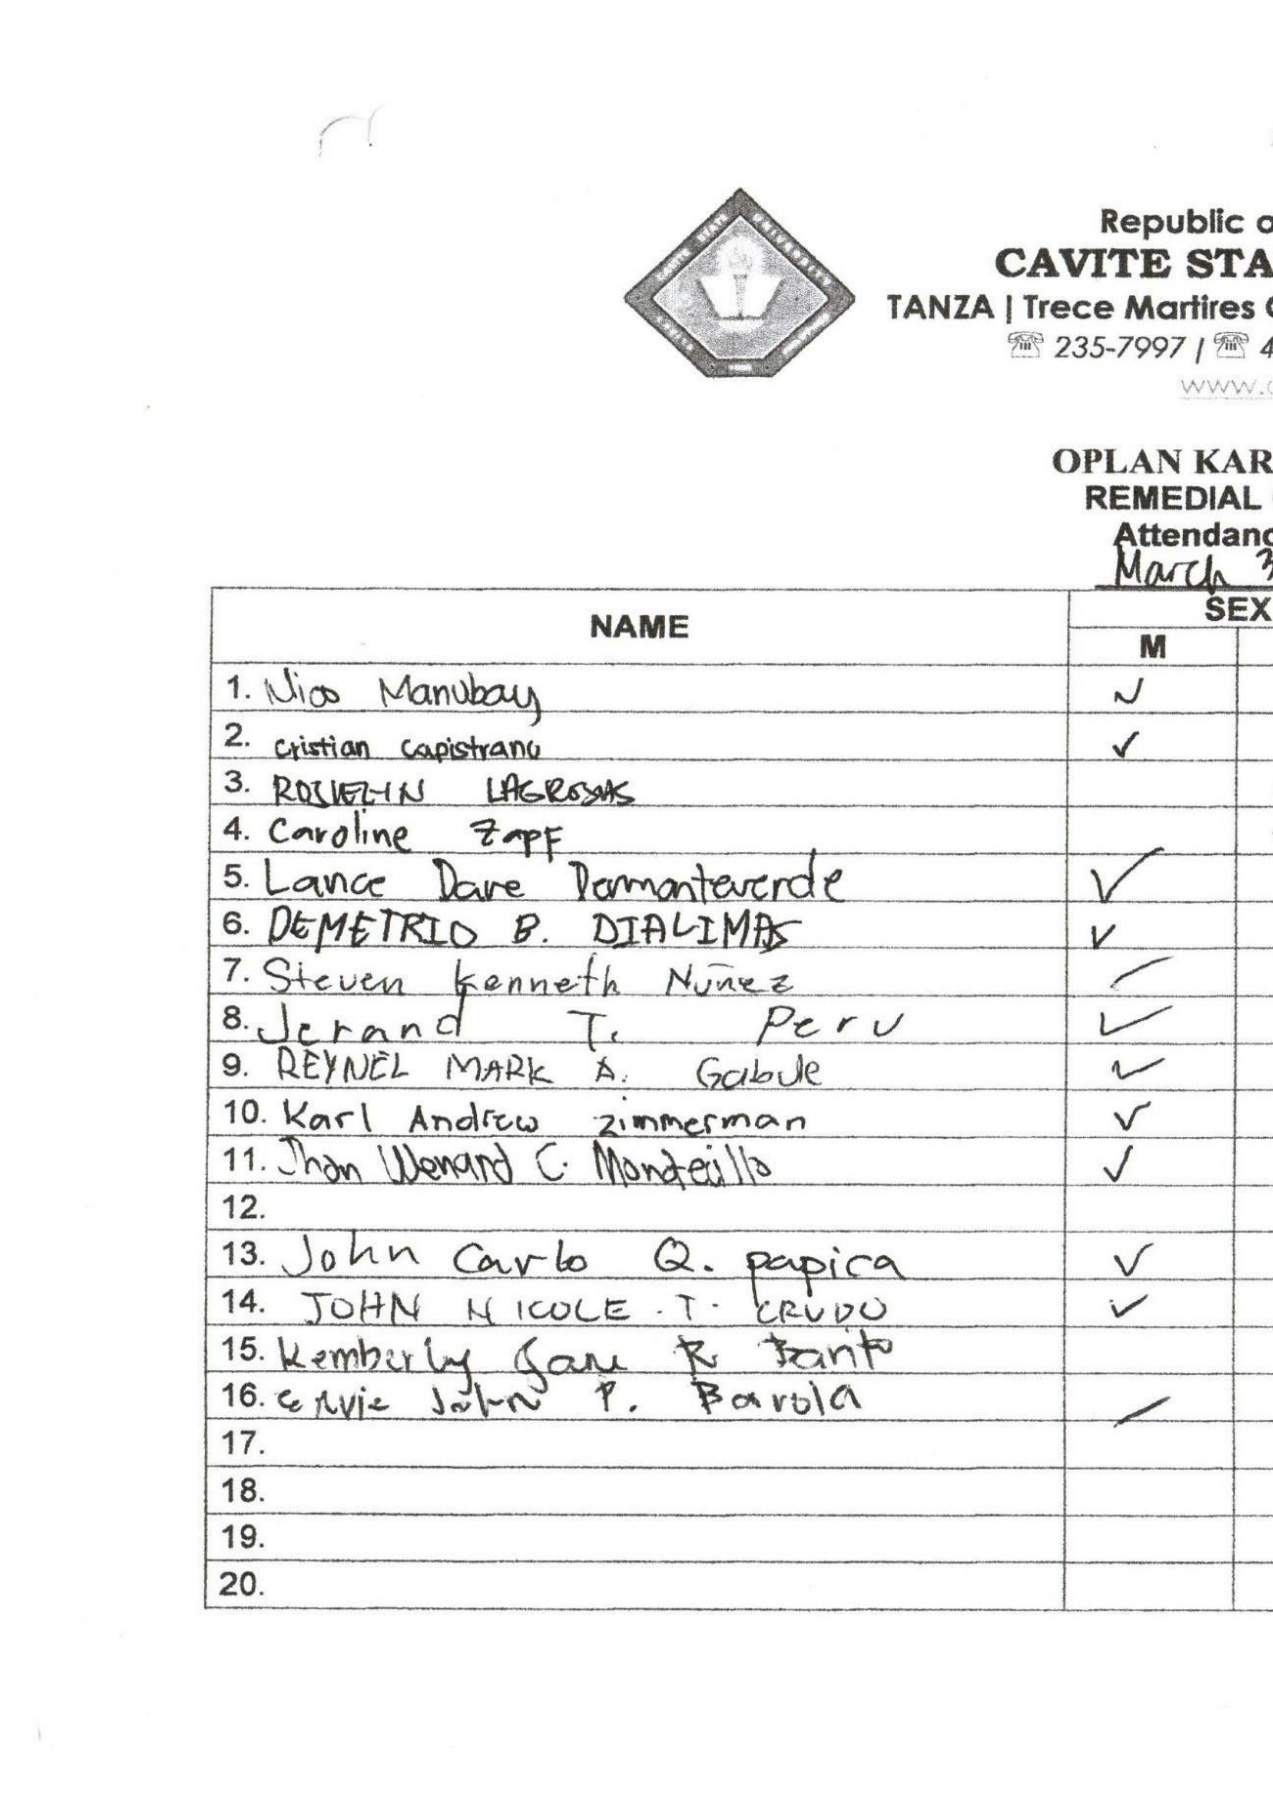 Republic o
CAVITE STA
TANZA | Trece Martires C
☏ 235-7997 / ☏ 4
www.c
OPLAN KAR
REMEDIAL
Attendanc
March 3
NAME
SEX
M
1. Nico Manubay ✓
2. Cristian Capistrano ✓
3. LAGROSAS
4. Caroline Zapf
5. Lance Dave Demonteverde ✓
6. DEMETRIO B. DIALIMAS ✓
7. Steven Kenneth Nuñez
8. Jerand T. Peru ✓
9. REYNEL MARK A. Gabule ✓
10. Karl Andrew Zimmerman ✓
11. Jhon Wenard C. ✓
12.
13. John Carlo Q. papica ✓
14. JOHN NICOLE . T. CRUDO ✓
15. Kemberly R.
16. John P. Barola
17.
18.
19.
20.